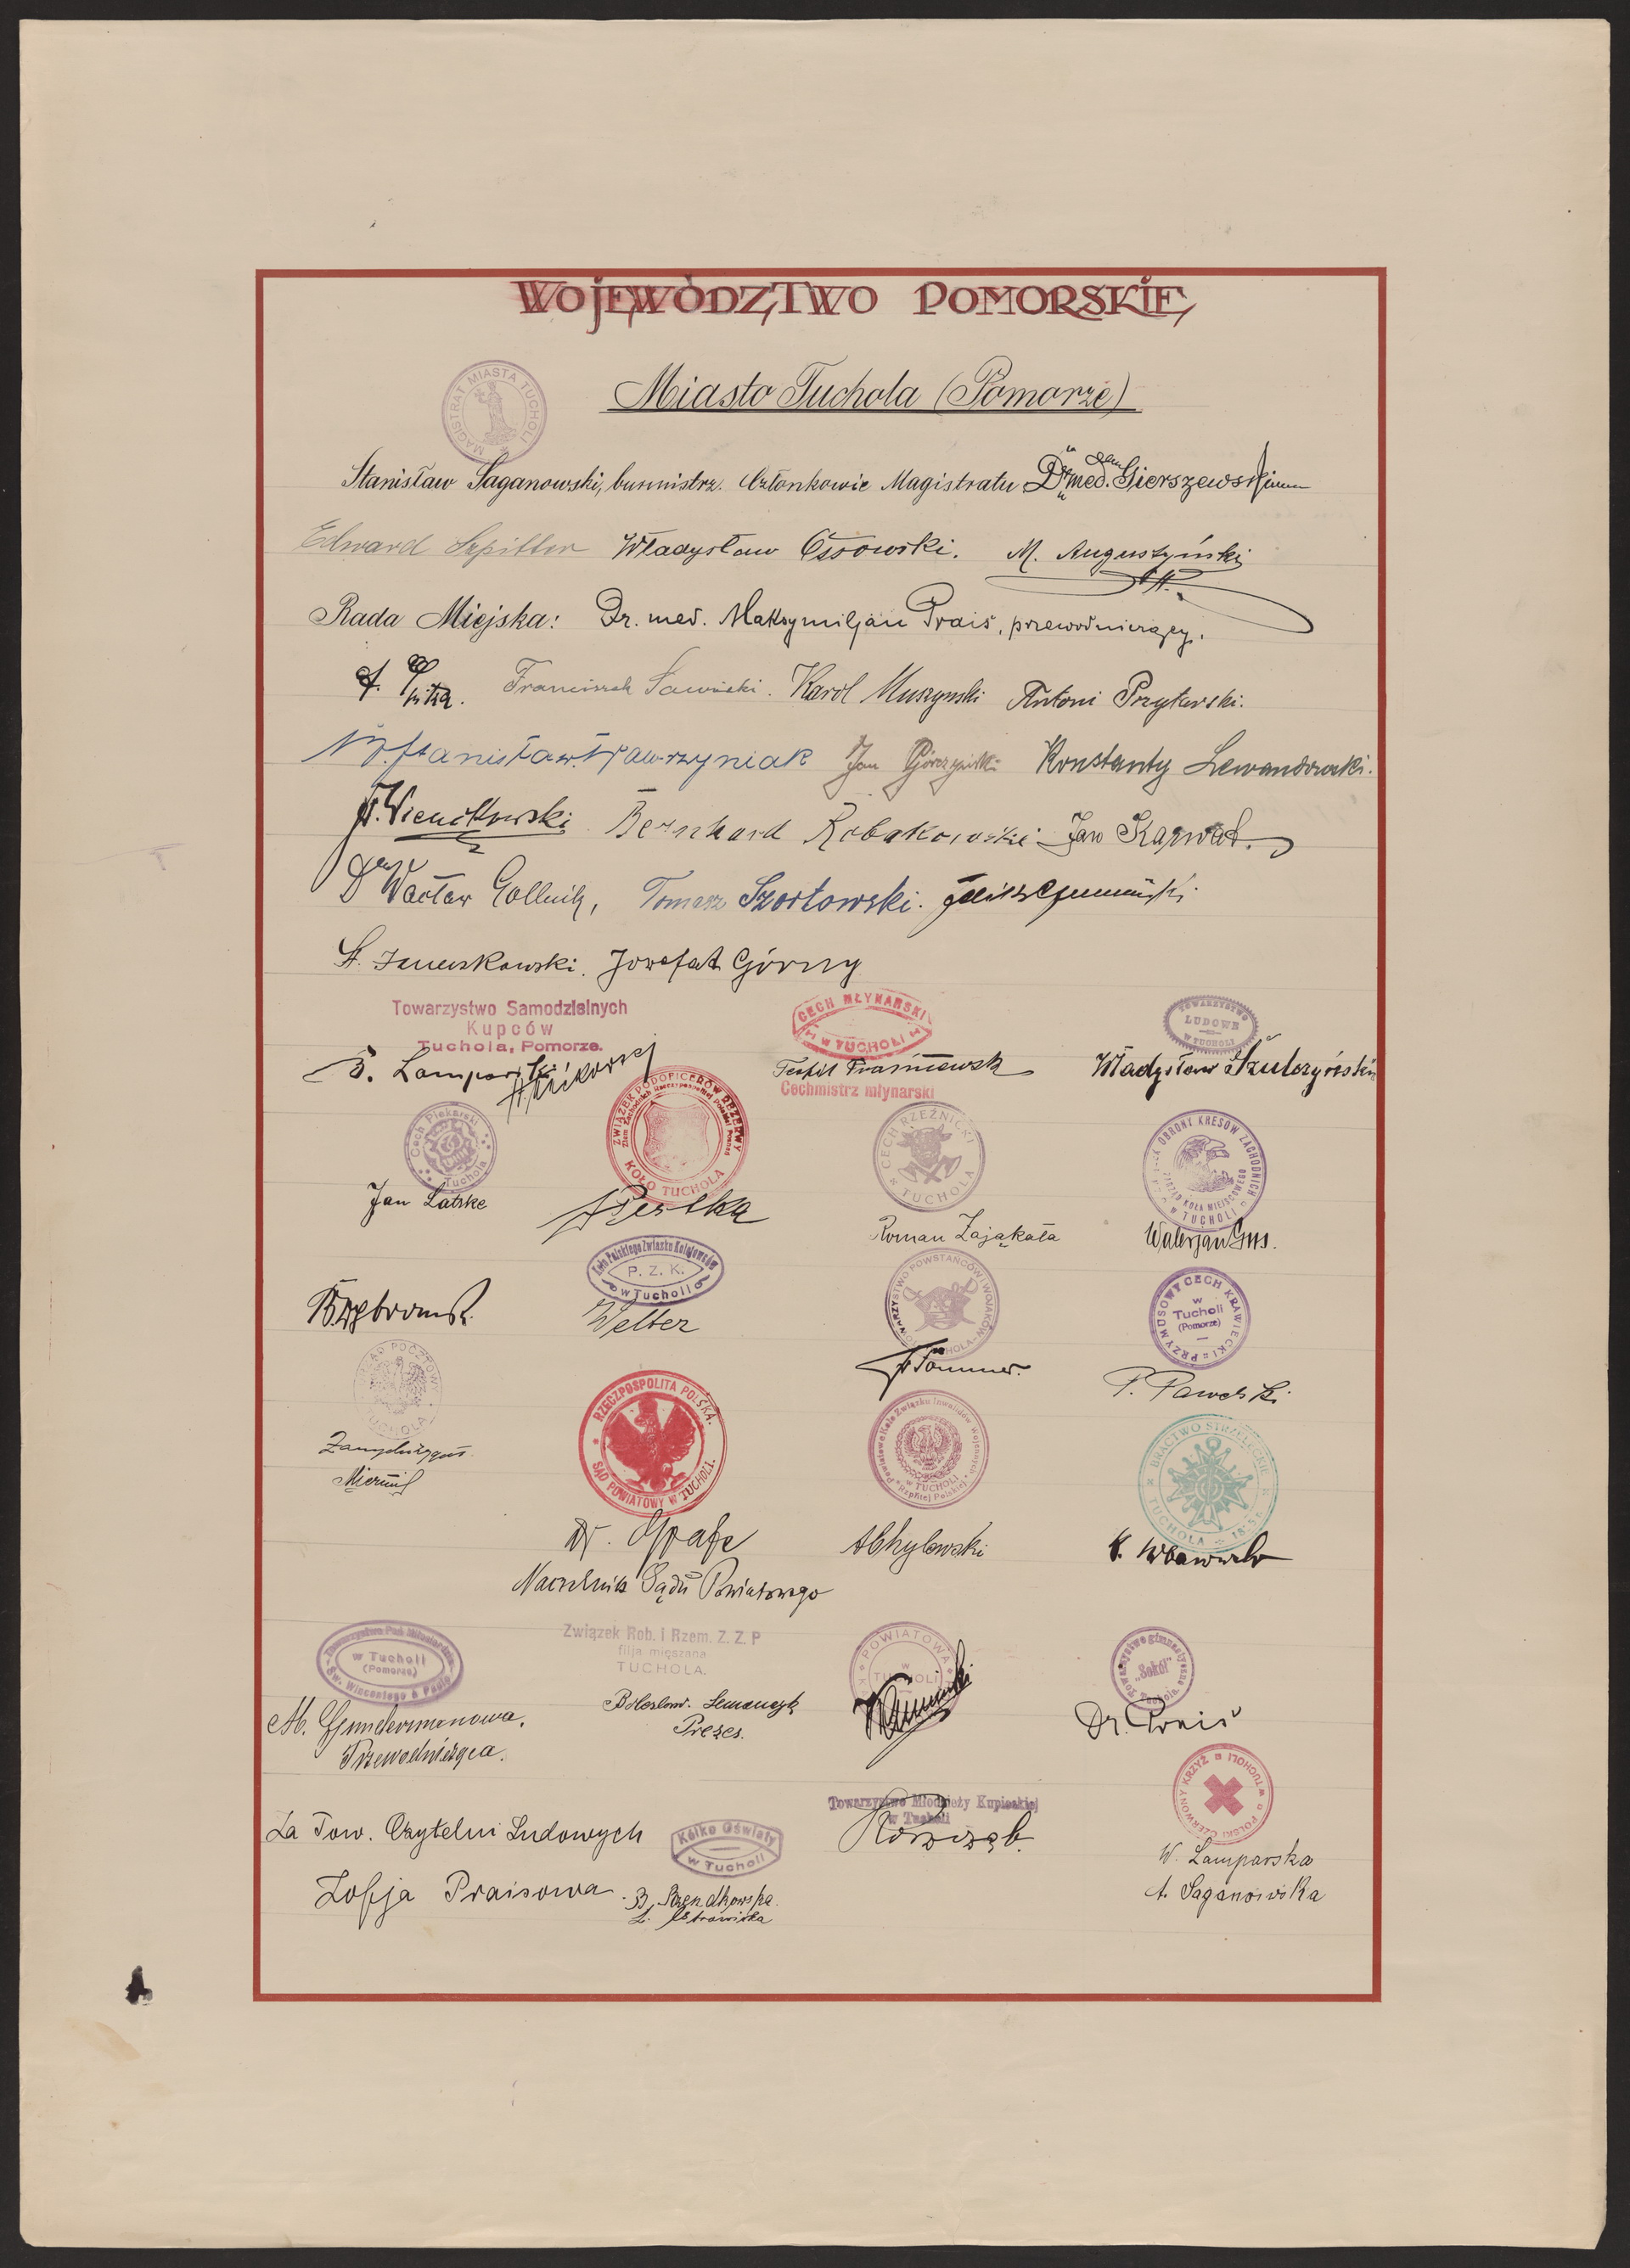 WOJEWÓDZTWO POMORSKIE
Miasto Tuchola (Pomorze)
MAGISTRAT MIASTA TUCHOLI
Stanisław Saganowski, burmistrz. Członkowie Magistratu Dr med. Gierszewski
Edward Szpitter Władysław Ossowski. M. Augustyński
Rada Miejska: Dr. med. Maksymiljan Prais, przewodniczący.
Franciszek Sawicki. Karol Muszynski Antoni Przytarski.
Stanisław Wawrzyniak Jan Górzyński Konstanty Lewandowski.
Bernhard Robakowski Jan Karwat.
Dr Wacław Gollnik, Tomasz Szortowski.
St. Januszkowski. Jozefat Górny
Towarzystwo Samodzielnych
Kupców
Tuchola, Pomorze.
CECH MŁYNARSKI
w TUCHOLI
TOWARZYSTWO
LUDOWE
w TUCHOLI
Teofil
Cechmistrz młynarski
Władysław Szulczyński
Cech Piekarski
Tuchola
ZWIĄZEK PODOFICERÓW REZERWY
Ziem Zachodnich Rzeczypospolitej Polskiej Poznań
KOŁO TUCHOLA
CECH RZEŹNICKI
TUCHOLA
OBRONY KRESÓW ZACHODNICH
ZARZĄD KOŁA MIEJSCOWEGO
w TUCHOLI
Jan Latzke
Roman Zająkała
Walerjan Gus.
Koło Polskiego Związku Kolejowców
P. Z. K.
w Tucholi
Welter
TOWARZYSTWO POWSTAŃCÓW I WOJAKÓW
TUCHOLA
PRZYMUSOWY CECH KRAWIECKI
w
Tucholi
(Pomorze)
P. Pawelski
URZĄD POCZTOWY
TUCHOLA
RZECZPOSPOLITA POLSKA.
SĄD POWIATOWY W TUCHOLI.
Powiatowe Koło Związku Inwalidów Wojennych
Rzplitej Polskiej
w TUCHOLI
BRACTWO STRZELECKIE
TUCHOLA
Dr. Grafe
Naczelnik Sądu Powiatowego
A Chylewski
Towarzystwo Pań Miłosierdzia
w Tucholi
(Pomorze)
Św. Wincentego à Paulo
Związek Rob. i Rzem. Z. Z. P
filja mięszana
TUCHOLA.
POWIATOWA
w
TUCHOLI
Towarzystwo gimnastyczne
"Sokół"
Tuchola
M. Gundermanowa,
Przewodnicząca.
Bolesław. Lemańczyk
Prezes.
Dr. Prais
POLSKI CZERWONY KRZYŻ
w TUCHOLI
Towarzystwo Młodzieży Kupieckiej
w Tucholi
Za Tow. Czytelni Ludowych
Kółko Oświaty
w Tucholi
Zofja Praisowa
W. Lamparska
A. Saganowska